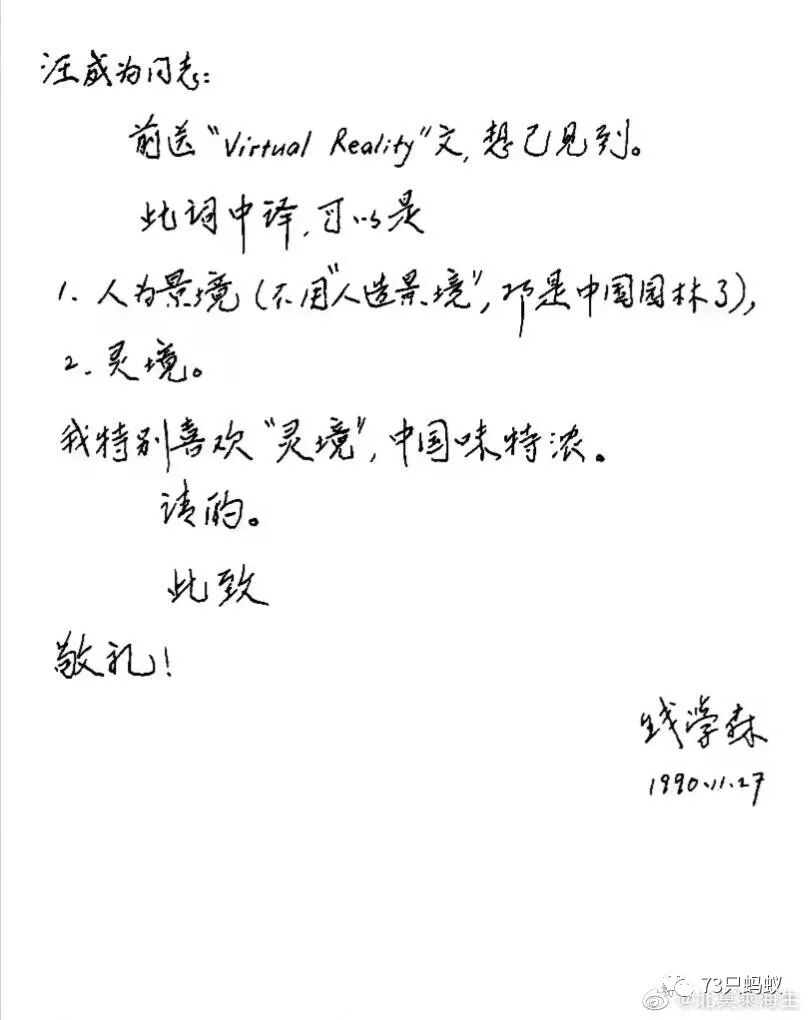 汪成为同志:
前送"Virtual Reality"文,想已见到。
此词中译,可以是
1. 人为景境(不用"人造景境",那是中国园林了),
2. 灵境。
我特别喜欢"灵境",中国味特浓。
请酌。
此致
敬礼!
钱学森
1990.11.27
73只蚂蚁